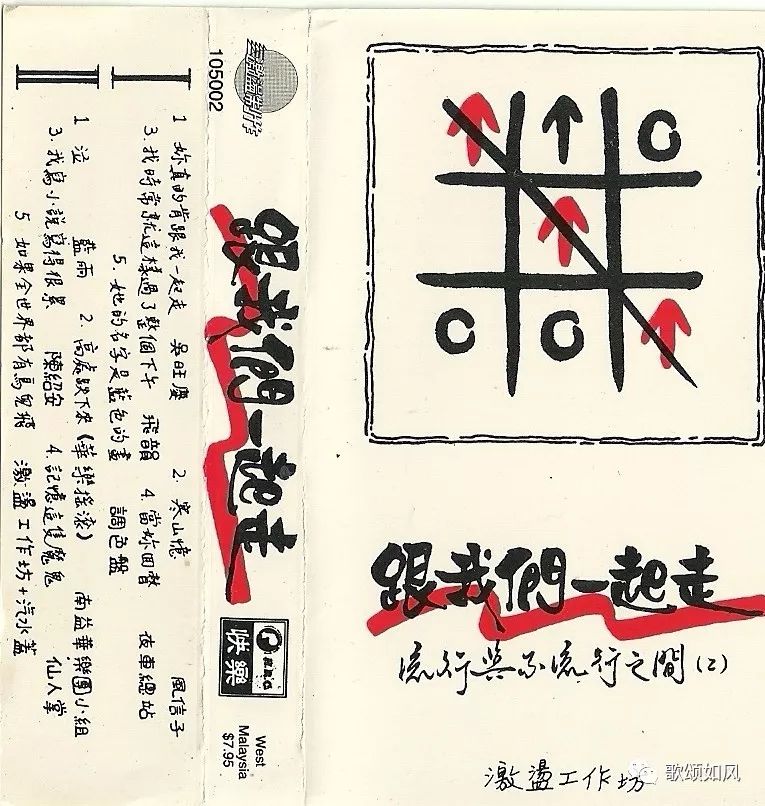 跟我們一起走
流行與不流行之間(2)
激盪工作坊
105002
跟我們一起走
快樂
West
Malaysia
$7.95
I
1 妳真的肯跟我一起走 吳旺慶 2. 寒山憶 風信子
3. 我時常就這樣過了整個下午 飛韻 4. 當妳回 夜車總站
5. 她的名字是藍色的 調色盤
II
1 泣 藍雨 2. 高處跌下來(華樂搖滾) 南益華樂團小組
3. 我寫小說寫得很累 陳紹安 4. 記憶這隻魔鬼 仙人掌
5 如果全世界都有鳥兒飛 激盪工作坊+汽水蓋
歌颂如风